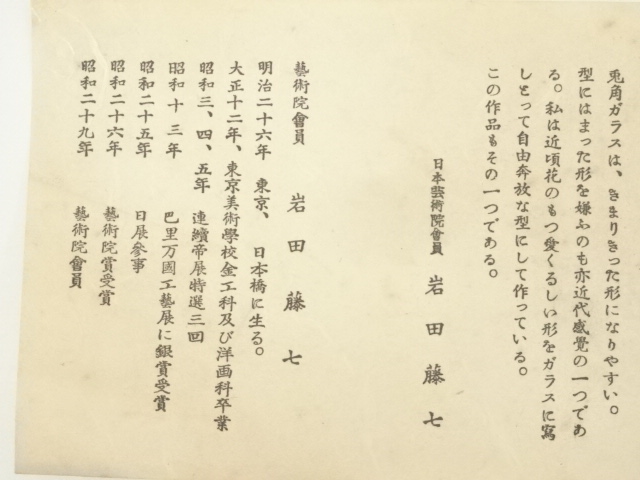 兎角ガラスは、きまりきった形になりやすい。
型にはまった形を嫌ふのも亦近代感覚の一つであ
る。私は近頃花のもつ愛くるしい形をガラスに寫
しとって自由奔放な型にして作っている。
この作品もその一つである。
日本芸術院會員 岩田藤七
藝術院會員 岩田藤七
明治二十六年 東京、日本橋に生る。
大正十二年、東京美術學校金工科及び洋画科卒業
昭和三、四、五年 連續帝展特選三回
昭和十三年 巴里万國工藝展に銀賞受賞
昭和二十五年 日展参事
昭和二十六年 藝術院賞受賞
昭和二十九年 藝術院會員